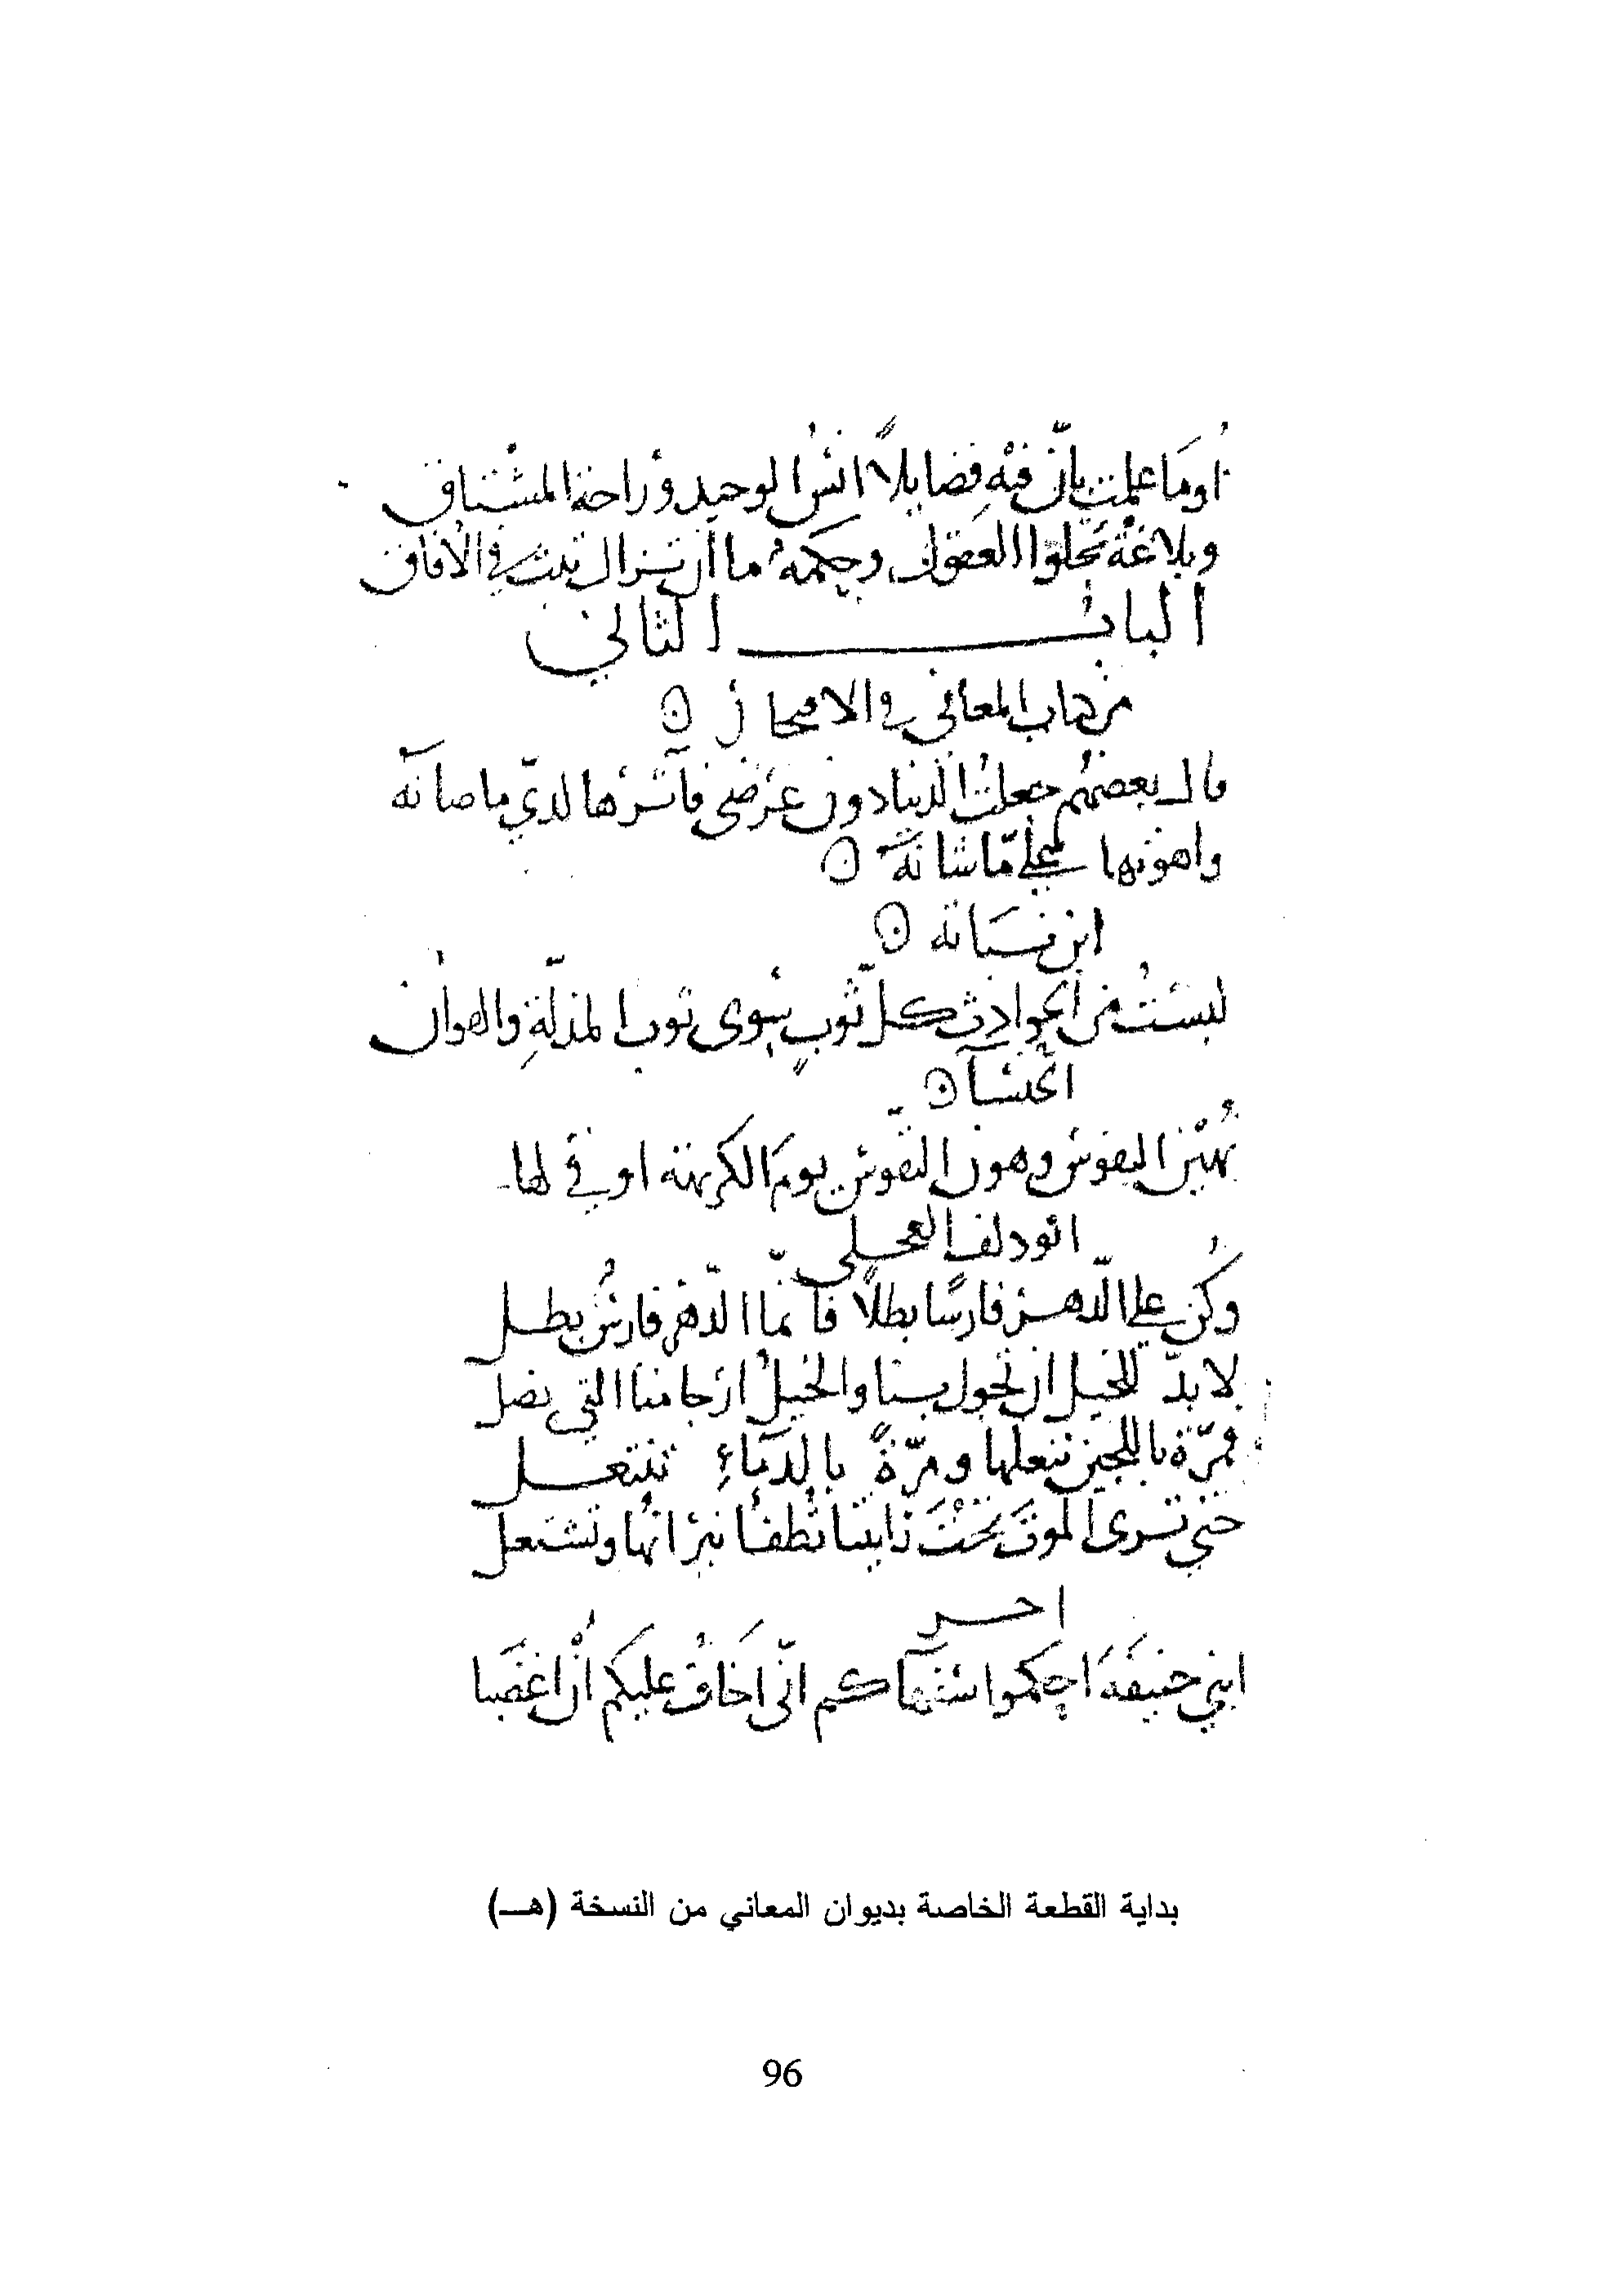 أومَا علمت بأنّ فيْهِ فضايلاً انسُ الوحيد وراحة المشتاق
وبلاغةٌ تجلوا العقول وحكمةٌ ما أن تزال تبث في الآفاق
البابُ الثاني
من كتاب المعاني في الافتخار
قال بعضهُم جعلتُ الدنيا دون عرْضي فآثرها لديّ ما صانَهُ
واهونها علي ما شانَهُ
ابن نُبَاتة
لبستُ من الحوادث كلّ ثوبٍ سِوى ثوب المذلّةِ والهوان
الخنسآ
نُهيْن النفوسَ وهون النفوس يومَ الكريهة اوقي لها
ابو دلف العجلي
وكُن على الدّهر فارسًا بطلاً فانّما الدّهر فارسٌ بطل
لابدّ للخيل ان تجول بنا والخيلُ ارحامنا التي نصل
فمرّة باللجين ننعلها ومرّةً بالدمآءِ تنتعل
حتى ترى الموتَ تحْتَ رايتنا تُطفأ نيرانُها وتشتعل
اخر
ابني حنيفَةَ احكموا سفهآكم انّى اَخافُ عليكم أنْ اغضَبا
بداية القطعة الخاصة بديوان المعاني من النسخة (هـ)
96